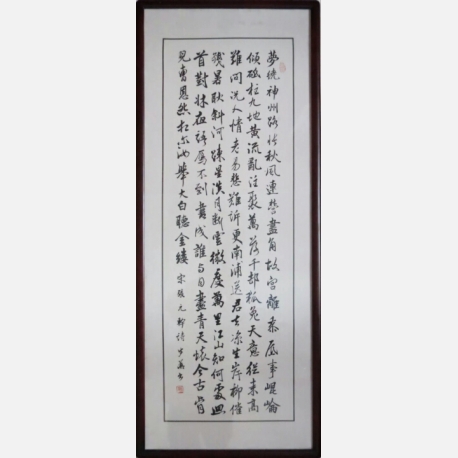 夢繞神州路悵秋風連營畫角故宮離黍底事崐崙
傾砥柱九地黄流亂注聚萬落千邨狐兔天意從來高
難問況人情老易悲難訴更南浦送君去凉生岸柳催
殘暑耿斜河疎星淡月斷雲微度萬里江山知何處回
首對牀夜語雁不到書成誰与目盡青天懷今古肯
兒曹恩怨相尔汝舉大白聽金縷 宋張元幹詩